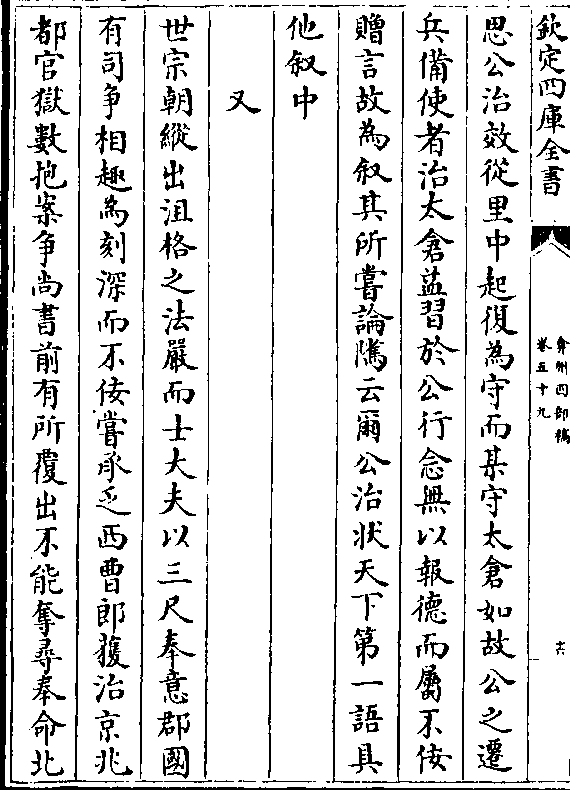 欽定四庫全書
弇州四部稿
卷五十九
六
思公治效從里中起復為守而某守太倉如故公之遷
兵備使者治太倉益習於公行念無以報德而屬不佞
贈言故為叙其所嘗論隲云爾公治状天下第一語具
他叙中
又
世宗朝縱出沮格之法嚴而士大夫以三尺奉意郡國
有司爭相趣為刻深而不佞嘗承乏西曹郎獲治京兆
都官獄數抱案爭尚書前有所覆出不能奪尋奉命北